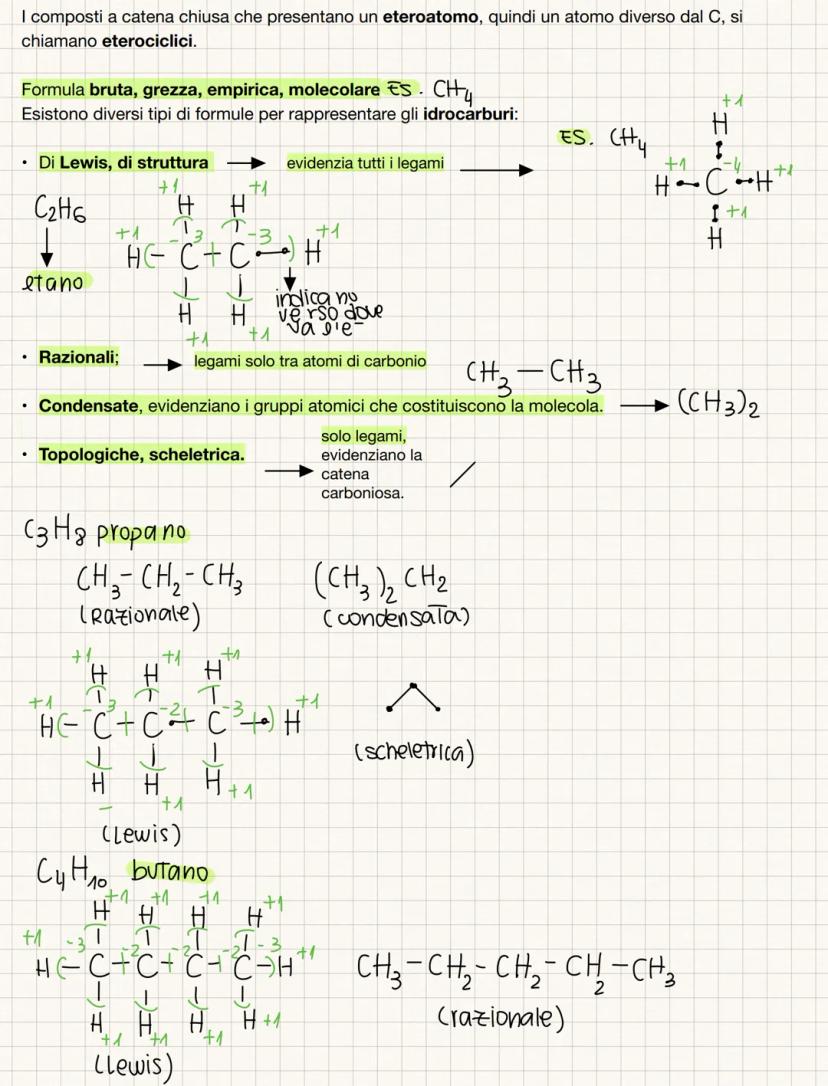 I composti a catena chiusa che presentano un eteroatomo, quindi un atomo diverso dal C, si
chiamano eterociclici.
Formula bruta, grezza, empirica, molecolare ES. CH4
Esistono diversi tipi di formule per rappresentare gli idrocarburi:
• Di Lewis, di struttura → evidenzia tutti i legami → ES. CH4
+1
H
+1 -4 +1
H C H
+1
H
C2H6
↓
etano
+1 +1
H H
+1 -3 -3 +1
H - C + C - H
H H
+1 +1
↓
indicano
verso dove
va l'e-
• Razionali; → legami solo tra atomi di carbonio CH3 - CH3
• Condensate, evidenziano i gruppi atomici che costituiscono la molecola. → (CH3)2
• Topologiche, scheletrica. → solo legami,
evidenziano la
catena
carboniosa.
C3H8 propano
CH3 - CH2 - CH3 (CH3)2 CH2
(Razionale) (condensata)
+1 +1 +1
H H H
+1 -3 -2 -3 +1
H - C + C + C + H
H H H +1
- +1
(Lewis)
(scheletrica)
C4H10 butano
+1 +1 +1 +1
H H H H
+1 -3 -2 -2 -3 +1
H - C + C + C + C - H
H H H H +1
+1 +1 +1
(Lewis)
CH3 - CH2 - CH2 - CH2 - CH3
(razionale)